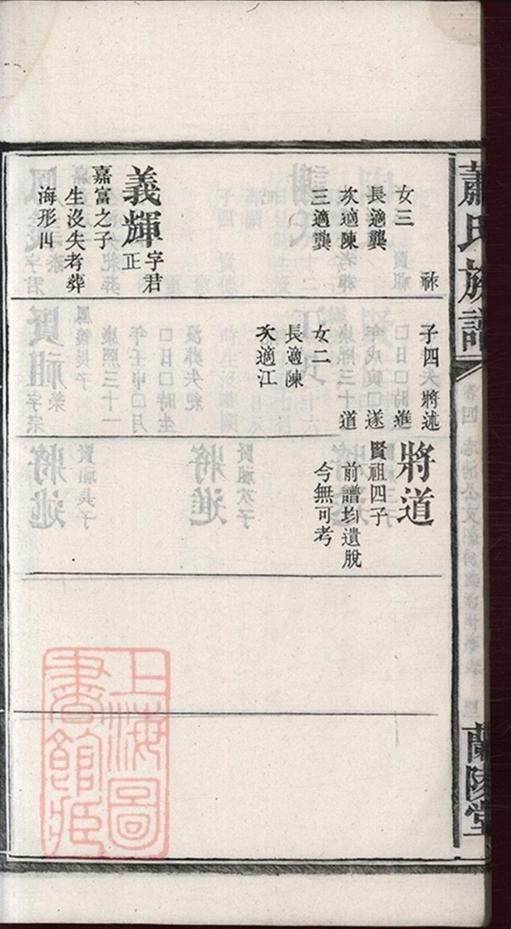 蕭氏族譜
蘭陵堂
女三
長適龔
次適陳
三適龔
義輝
字君
正
嘉富之子
生沒失考葬
海形山
子四 將述
進
遂
道
女二
長適陳
次適江
將道
賢祖四子
前譜均遺脫
今無可考
上海圖
書館藏